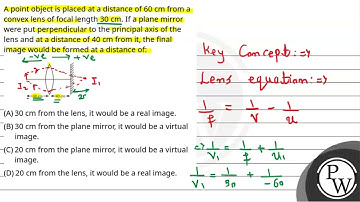 A point object is placed at a distance of 60 cm from a
convex lens of focal length 30 cm. If a plane mirror
were put perpendicular to the principal axis of the
lens and at a distance of 40 cm from it, the final
image would be formed at a distance of:
-ve +ve
I₂ I₁
(A) 30 cm from the lens, it would be a real image.
(B) 30 cm from the plane mirror, it would be a virtual
image.
(C) 20 cm from the plane mirror, it would be a virtual
image.
(D) 20 cm from the lens, it would be a real image.
Key Concept:⇒
Lens equation:⇒
1/f = 1/v - 1/u
⇒ 1/v₁ = 1/f + 1/u₁
1/v₁ = 1/30 + 1/-60
P
W